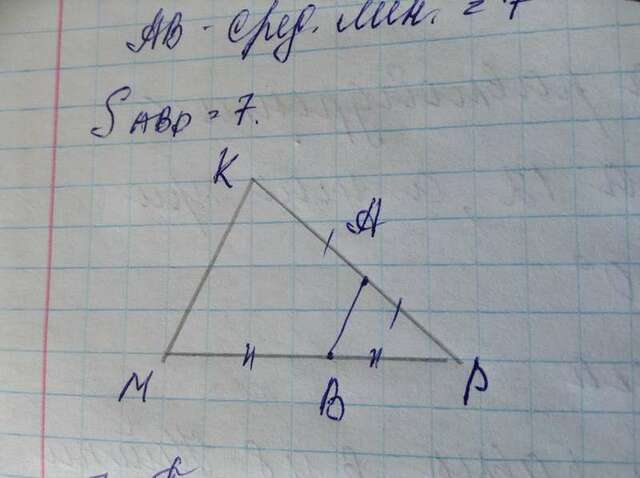 AB - сред. лин. = 7
S ABP = 7.
K
A
M
B
P